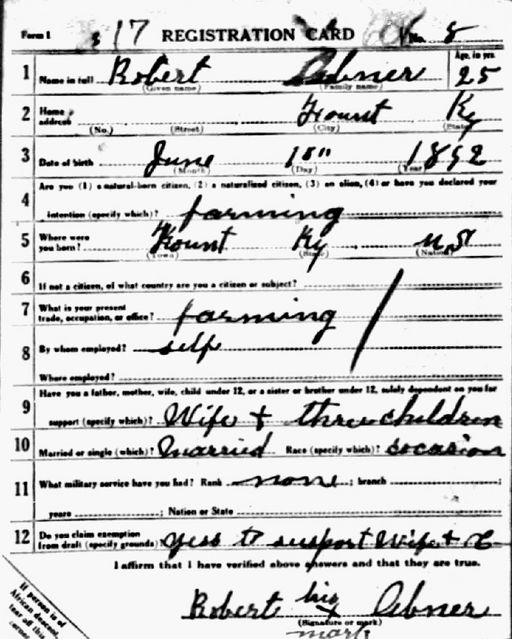 Form 1 8 17 REGISTRATION CARD No. 8
1 Name in full Robert Abner Age, in yrs. 25
(Given name) (Family name)
2 Home address Fount Ky
(No.) (Street) (City) (State)
3 Date of birth June 15" 1892
(Month) (Day) (Year)
4 Are you (1) a natural-born citizen, (2) a naturalized citizen, (3) an alien, (4) or have you declared your
intention (specify which)? farming
5 Where were you born? Fount Ky U.S
(Town) (State) (Nation)
6 If not a citizen, of what country are you a citizen or subject?
7 What is your present trade, occupation, or office? farming
8 By whom employed? self
Where employed?
9 Have you a father, mother, wife, child under 12, or a sister or brother under 12, solely dependent on you for
support (specify which)? Wife + three children
10 Married or single (which)? Married Race (specify which)? cocasion
11 What military service have you had? Rank none ; branch ;
years ; Nation or State
12 Do you claim exemption from draft (specify grounds)? yess to support Wife + C
I affirm that I have verified above answers and that they are true.
Robert his Abner
(Signature or mark)
mark
If person is of
African descent,
tear off this
corner